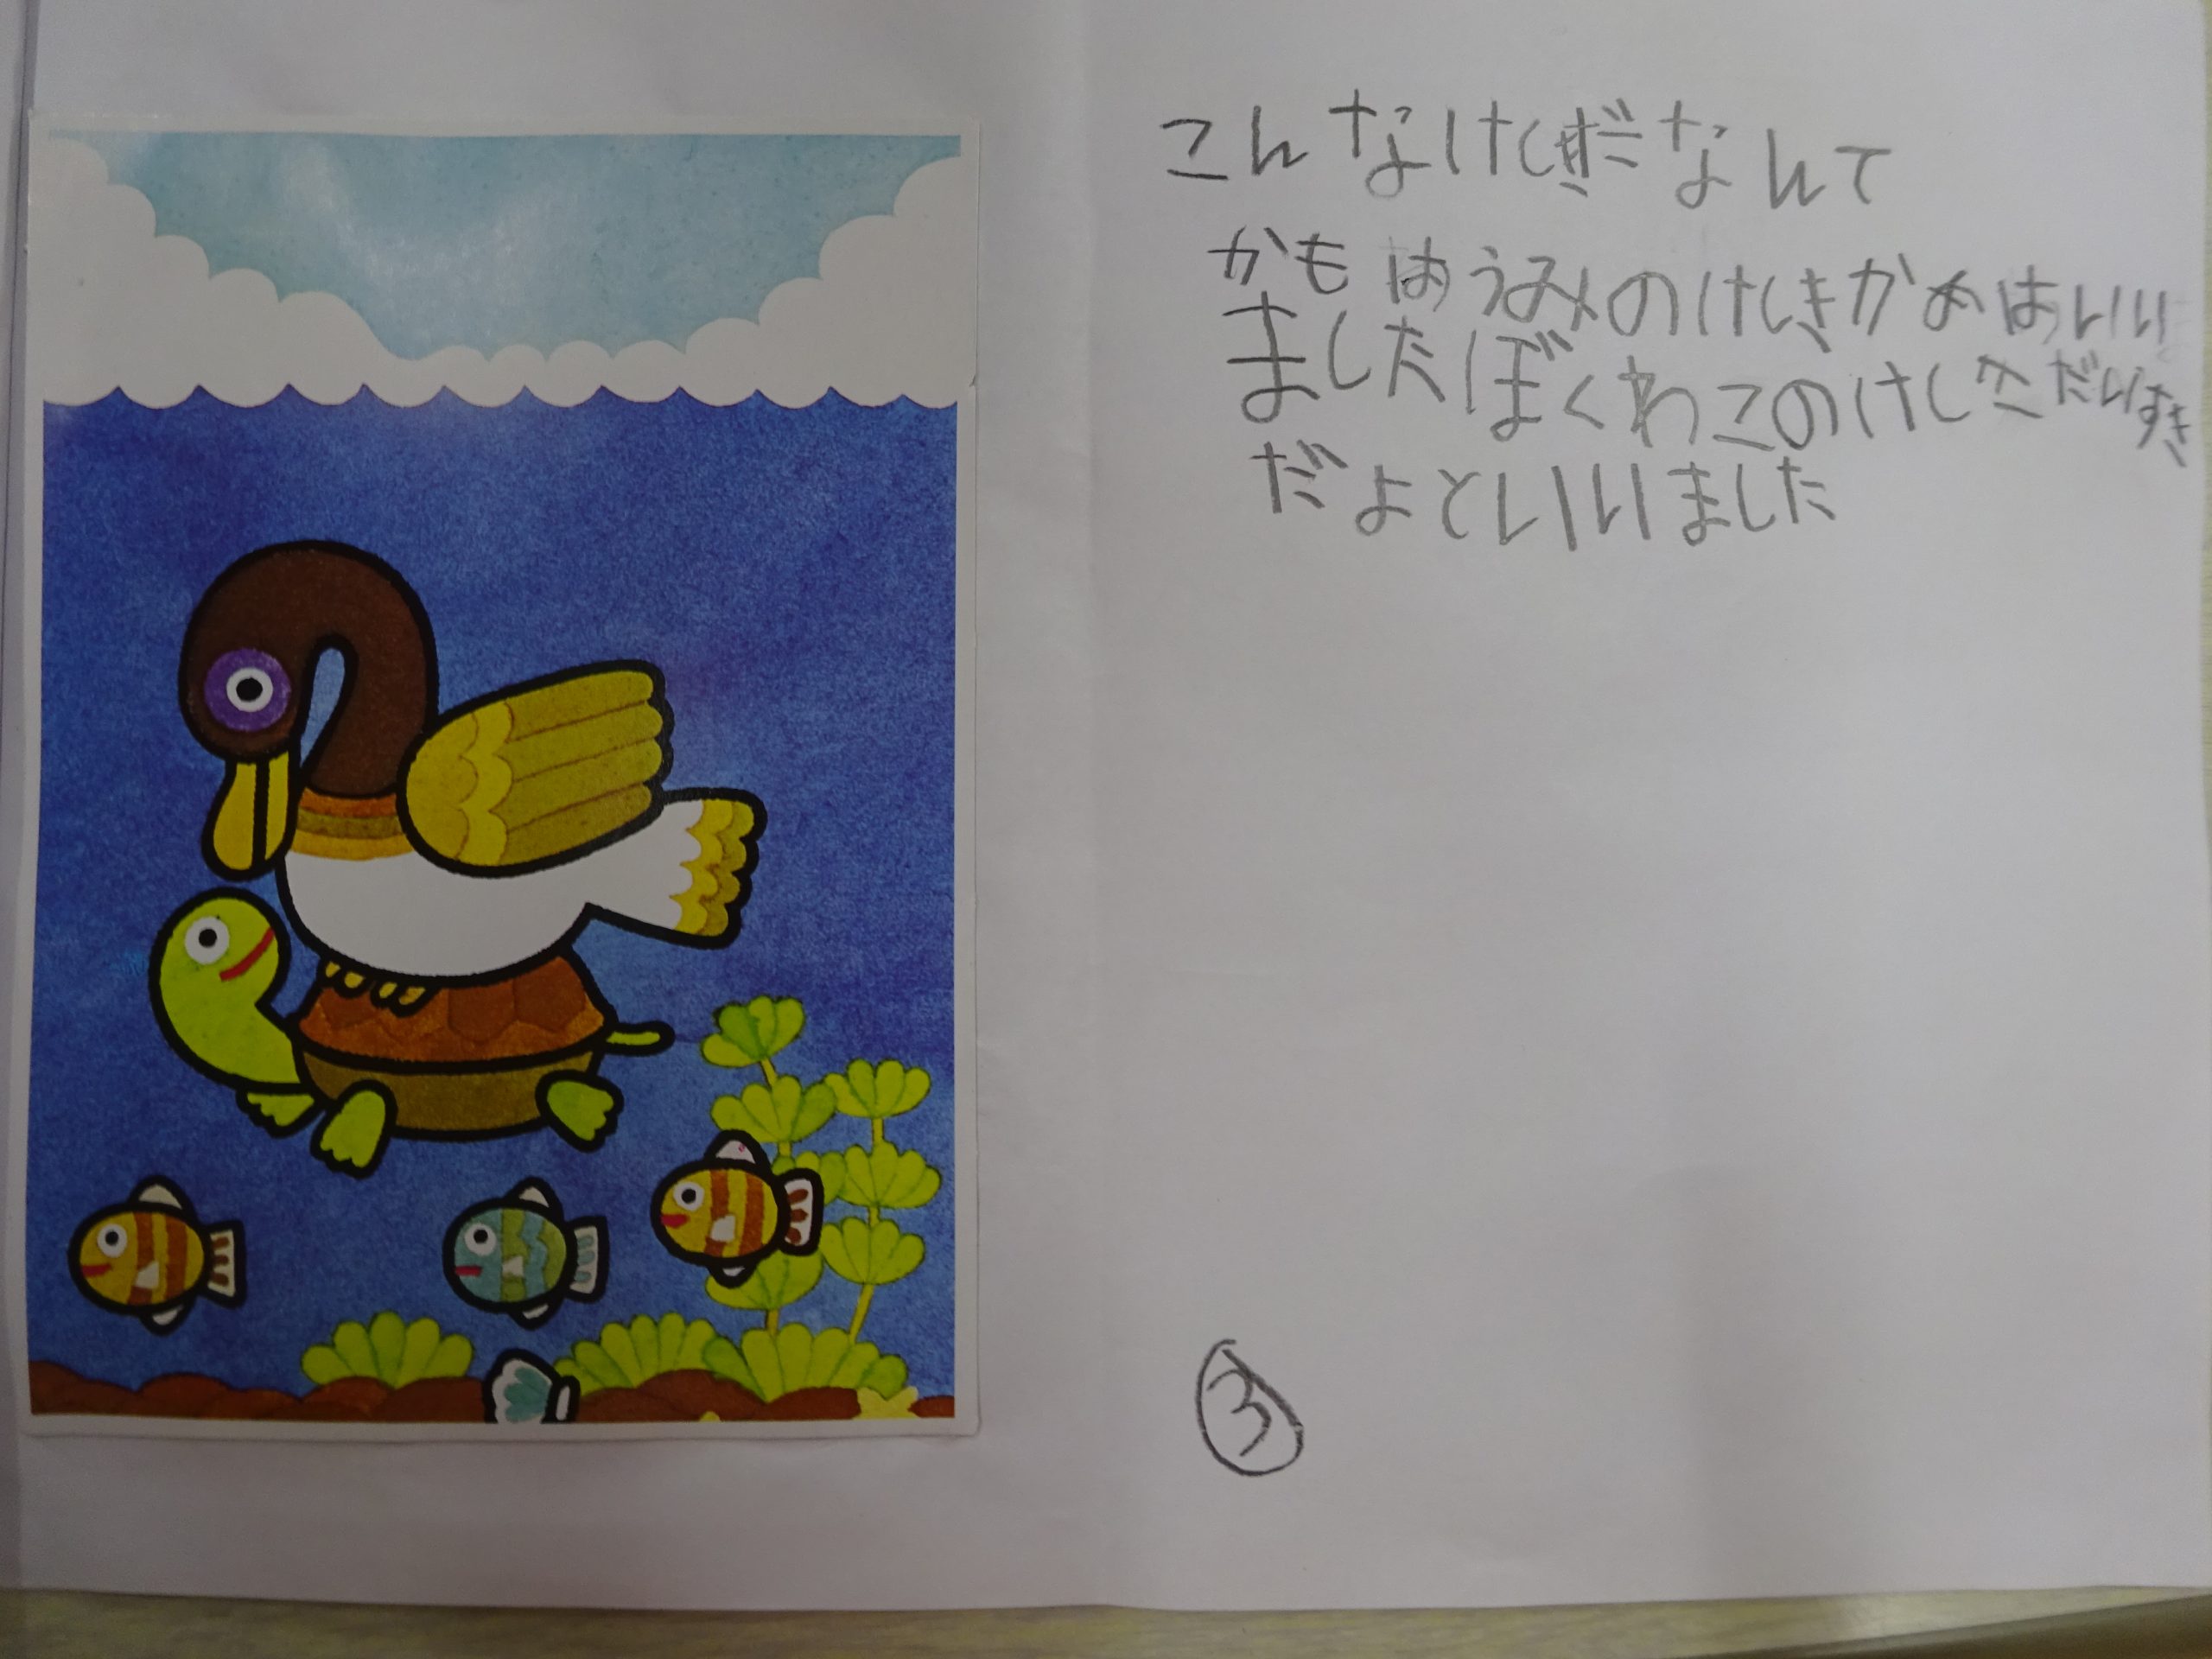 こんなけしきだなんて
かもはうみのけしきかめはいい
ましたぼくわこのけしきだいすき
だよといいました
③